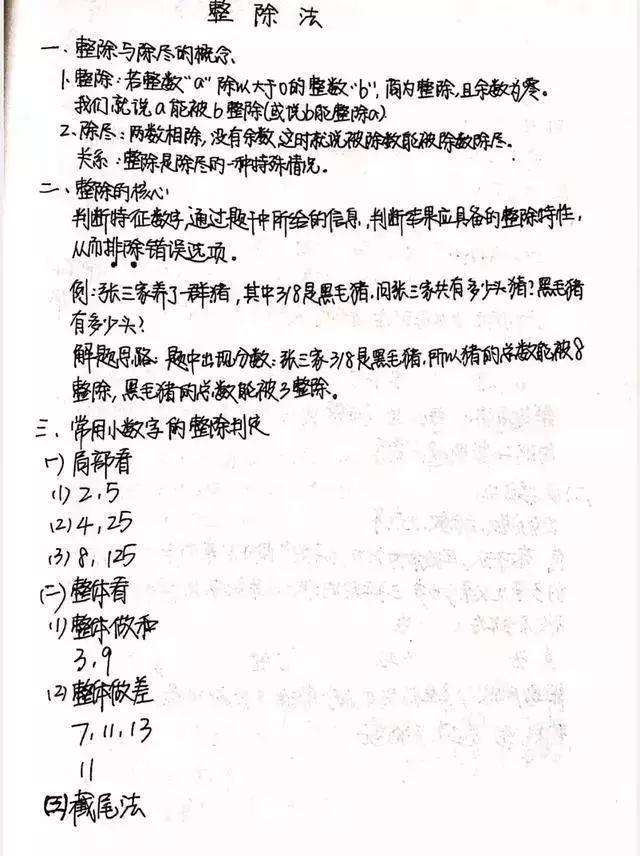 整除法
一、整除与除尽的概念.
1.整除:若整数"a"除以大于0的整数"b",商为整除,且余数为零。
我们就说a能被b整除(或说b能整除a)
2.除尽:两数相除,没有余数,这时就说被除数能被除数除尽。
关系:整除是除尽的一种特殊情况。
二、整除的核心
判断特征数字,通过题干中所给的信息,判断结果应具备的整除特性,
从而排除错误选项。
例:张三家养了一群猪,其中3/8是黑毛猪.问张三家共有多少头猪?黑毛猪
有多少头?
解题思路:题中出现分数:张三家3/8是黑毛猪.所以猪的总数能被8
整除,黑毛猪的总数能被3整除。
三、常用小数字的整除判定
(一)局部看
(1)2,5
(2)4,25
(3)8,125
(二)整体看
(1)整体做和
3,9
(2)整体做差
7,11,13
11
(三)截尾法